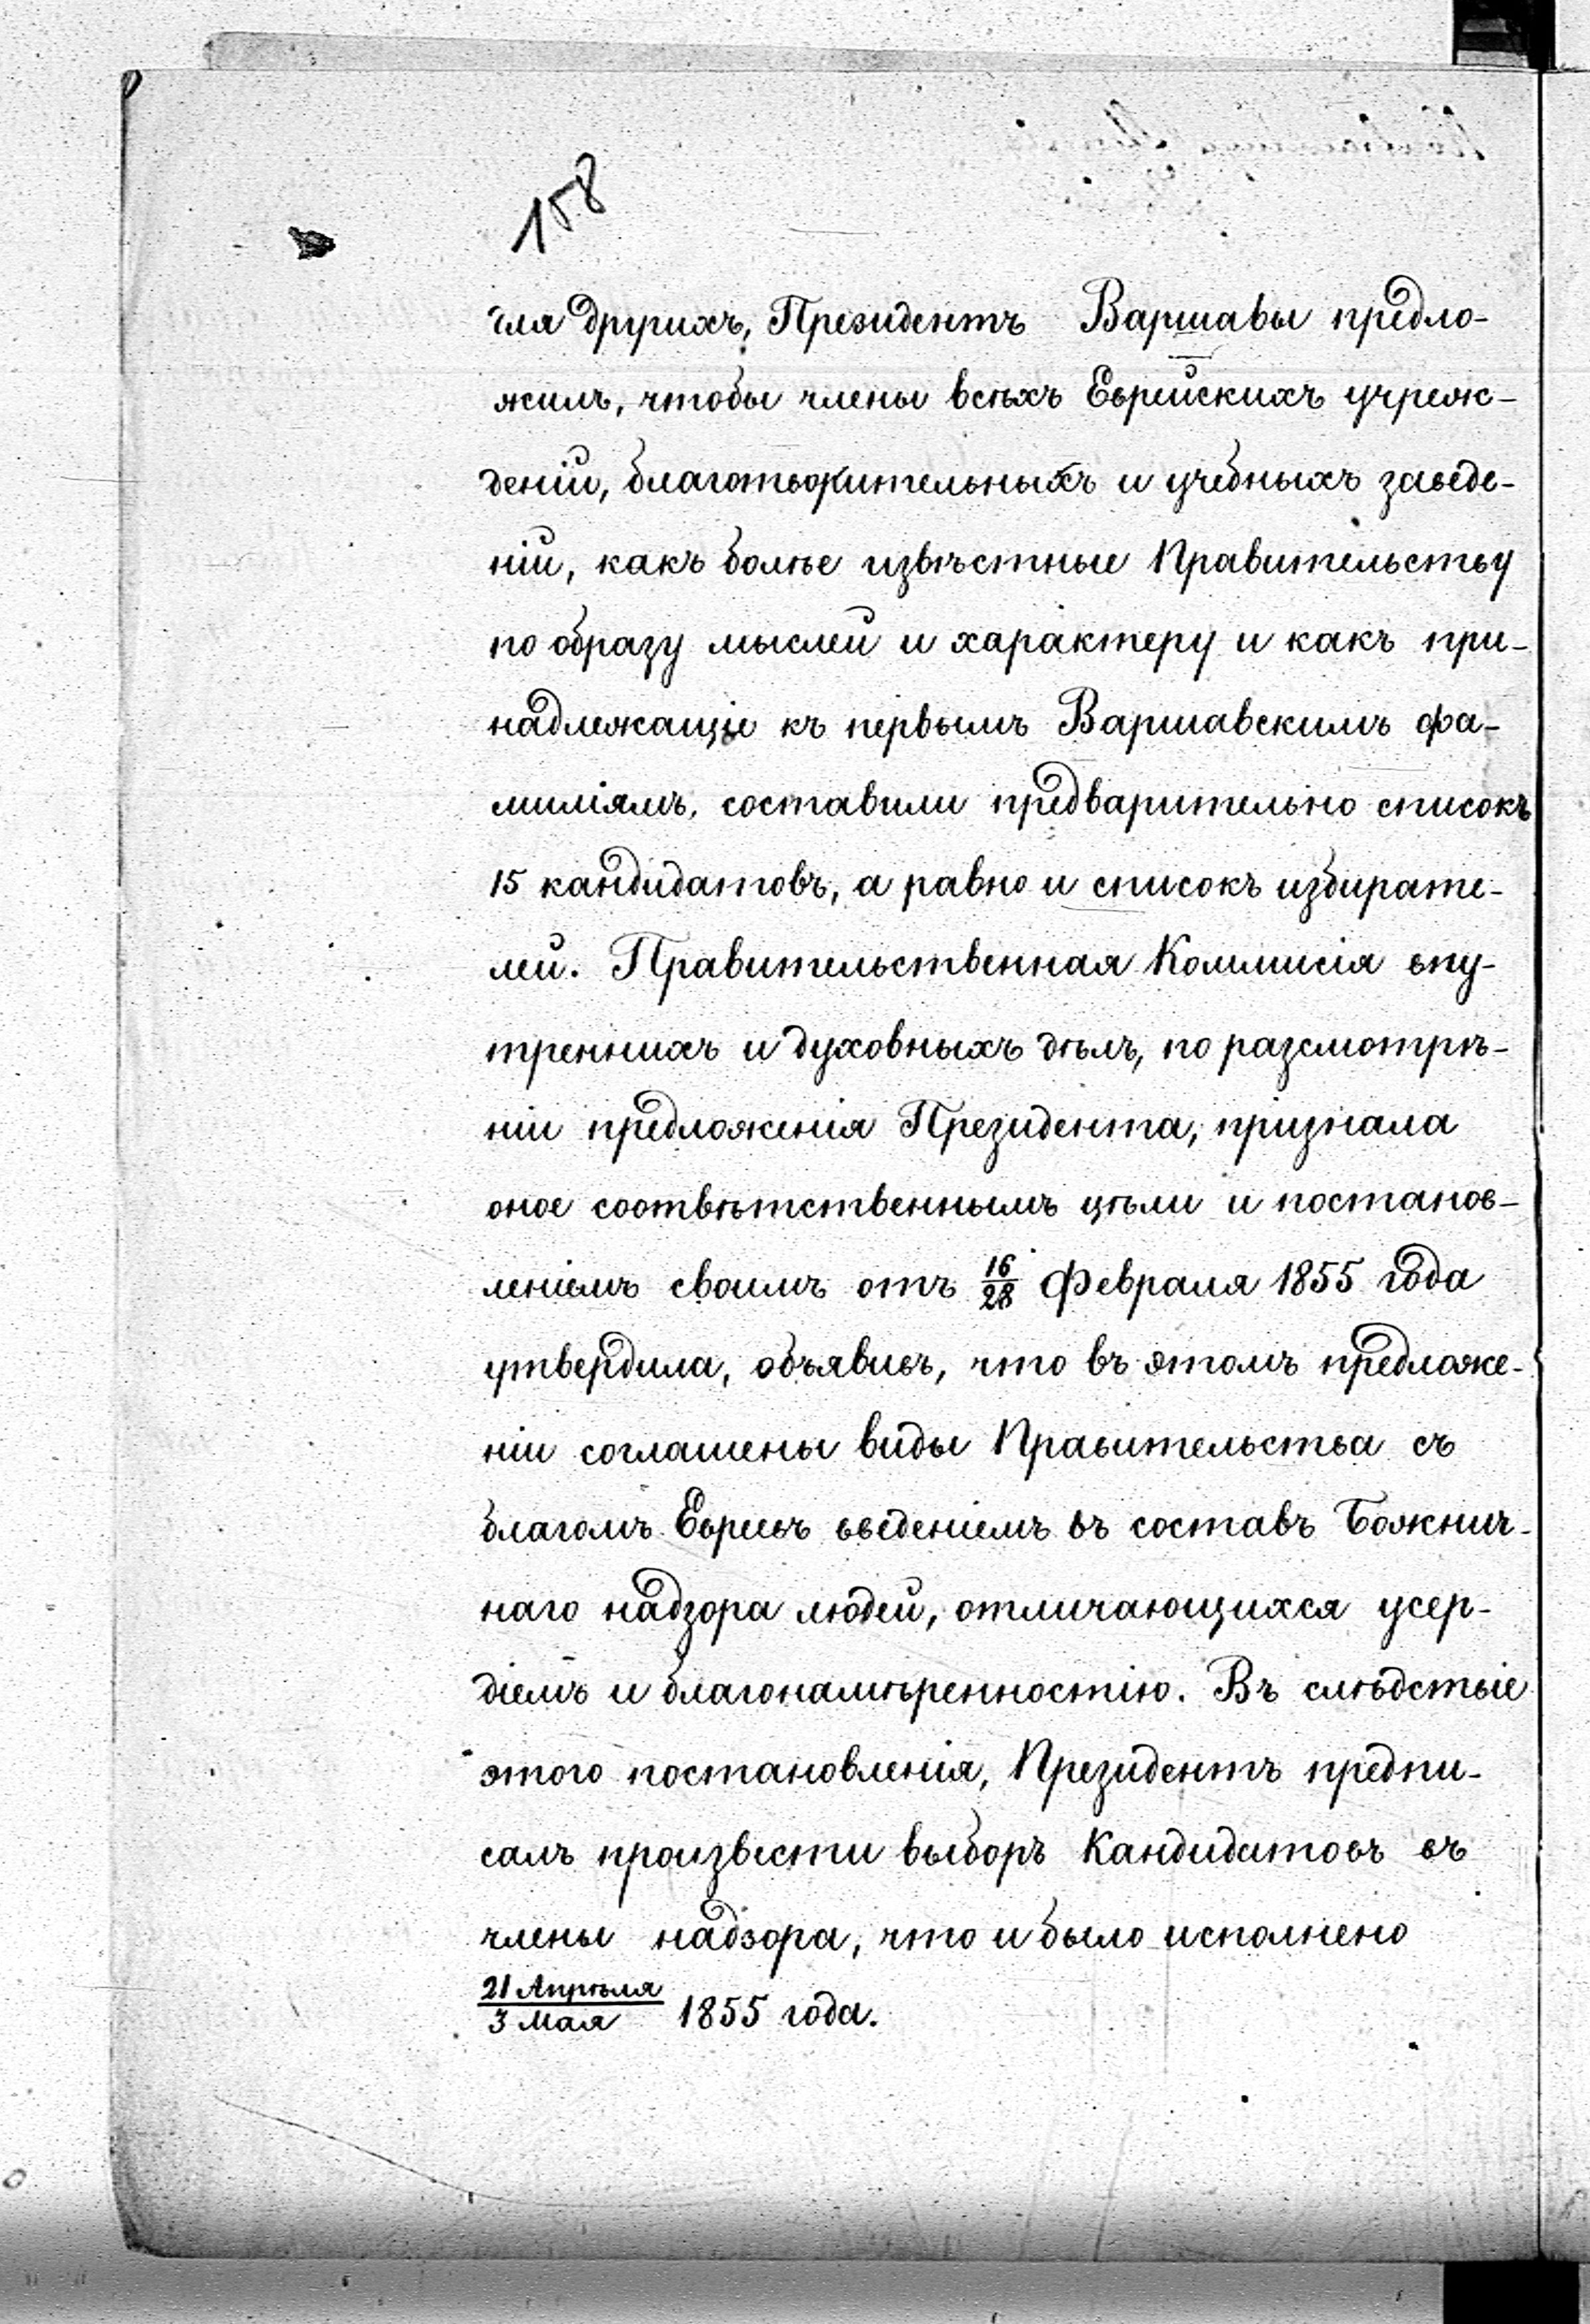 158
для другихъ, Президентъ Варшавы предло-
жилъ, чтобы члены всѣхъ Еврейскихъ учреж-
деній, благотворительныхъ и учебныхъ заведе-
ній, какъ болѣе извѣстные Правительству
по образу мыслей и характеру и какъ при-
надлежащіе къ первымъ Варшавскимъ фа-
миліямъ, составили предварительно списокъ
15 кандидатовъ, а равно и списокъ избирате-
лей. Правительственная Коммисія вну-
треннихъ и духовныхъ дѣлъ, по разсмотрѣ-
ніи предложенія Президента, признала
оное соотвѣтственнымъ цѣли и постанов-
леніемъ своимъ отъ 16/28 Февраля 1855 года
утвердила, объявивъ, что въ этомъ предложе-
ніи соглашены виды Правительства съ
благомъ Евреевъ введеніемъ въ составъ Божнич-
наго надзора людей, отличающихся усер-
діемъ и благонамѣренностію. Въ слѣдствіе
этого постановленія, Президентъ предпи-
салъ произвести выборъ Кандидатовъ въ
члены надзора, что и было исполнено
21 Апрѣля/3 Мая 1855 года.